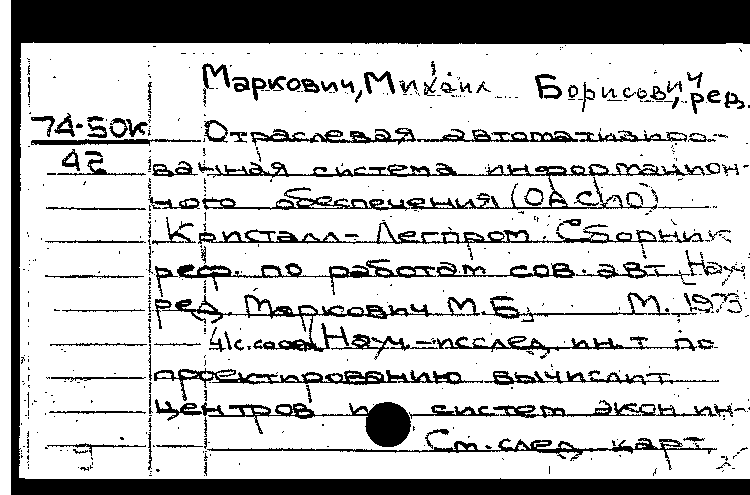 Маркович, Михаил Борисович, ред.
74-50к
42
Отраслевая автоматизиро-
ванная система информацион-
ного обеспечения (ОАСИО)
Кристалл-Легпром. Сборник
реф. по работам сов. авт. [Науч.
ред. Маркович М.Б.] М. 1973
41с. (Науч.-исслед. ин.т по
проектированию вычислит.
центров и систем экон ин-
См. след. карт.
9